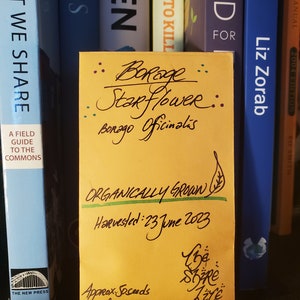 T WE SHARE
A FIELD
GUIDE
TO THE
COMMONS
THE NEW PRESS
TO KILL
D FOR
Liz Zorab
Borage
Starflower
Borago Officinalis
ORGANICALLY GROWN
Harvested: 23 June 2023
The
Share
Approx. 50 seeds